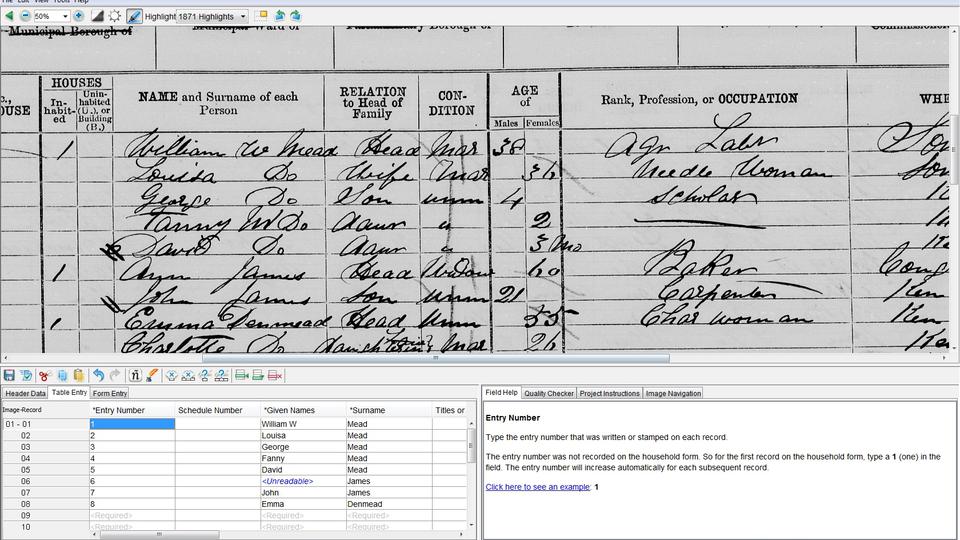 50%
Highlight
1871 Highlights
Municipal Borough of
HOUSES
In-
habit-
ed
Unin-
habited
(U.), or
Building
(B.)
NAME and Surname of each
Person
RELATION
to Head of
Family
CON-
DITION
AGE
of
Males
Females
Rank, Profession, or OCCUPATION
WHE
1 William W Mead Head Mar 38 Agr Labr
Louisa Do Wife Mar Needle Woman
George Do Son unm 4 scholar
Fanny M Do Daur 2
David Do Daur 3 Mo
1 Ann James Head Widow 60 Baker
John James Son unm 21 Carpenter Ken
1 Emma Denmead Head Unm 55 Char woman Ken
Charlotte Do Mar
Header Data
Table Entry
Form Entry
Image-Record
*Entry Number
Schedule Number
*Given Names
*Surname
Titles or
01 - 01 1 William W Mead
02 2 Louisa Mead
03 3 George Mead
04 4 Fanny Mead
05 5 David Mead
06 6 <Unreadable> James
07 7 John James
08 8 Emma Denmead
09 <Required> <Required> <Required>
10 <Required> <Required> <Required>
Field Help
Quality Checker
Project Instructions
Image Navigation
Entry Number
Type the entry number that was written or stamped on each record.
The entry number was not recorded on the household form. So for the first record on the household form, type a 1 (one) in the
field. The entry number will increase automatically for each subsequent record.
Click here to see an example: 1